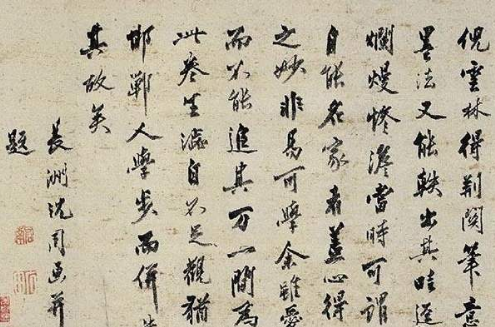 倪雲林得荊関筆意
墨法又能軼出其畦逕
爛熳慘澹當時可謂
自能名家者蓋心得
之妙非易可學余雖愛
而不能追其万一間為
此卷生澁自不足觀猶
邯鄲人學步而併
其故矣
長洲沈周画并
題